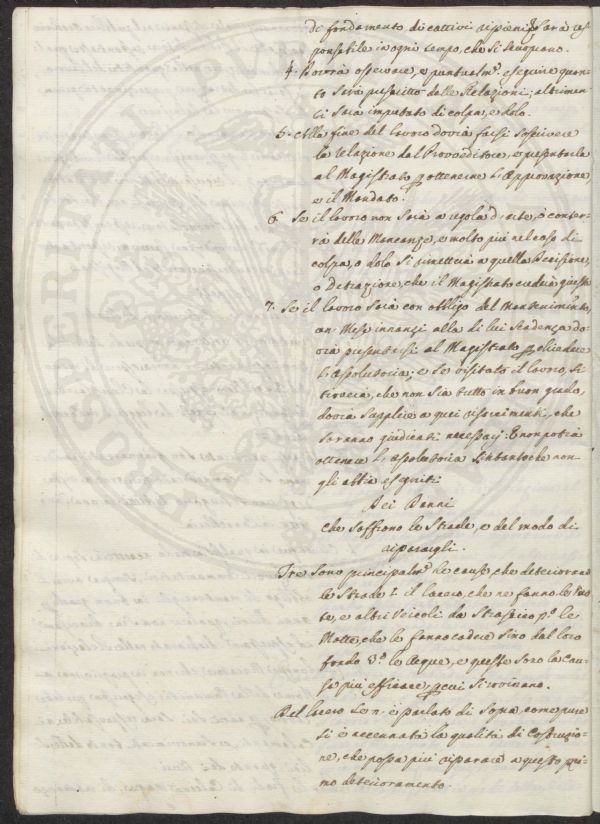 di fondamento di cattivi ripieni Sarà res-
ponsabile in ogni tempo, che si scuoprano.
4. Dovrà osservare, e puntualm.e eseguire quan-
to Sarà prescritto dalle Relazioni; altrimen-
ti Sarà imputato di colpa, e dolo.
5. Alla fine del lavoro dovrà farsi sottscrivere
la relazione dal Provveditore, e presentarla
al Magistrato p ottenerne l'Approvazione,
e il Mandato.
6. Se il lavoro non Sarà a regola d'arte, o conter-
rà delle Mancanze, e molto più nel caso di
colpa, o dolo Si rimetterà a quella
o Detrazione, che il Magistrato crederà giusta
7. Se il lavoro Sarà con obbligo del Mantenimento,
un Mese innanzi alla di lui Scadenza do-
vrà presentarsi al Magistrato p chiedere
l'Assolutoria; e Se visitato il lavoro, Si
troverà, che non Sia tutto in buon grado,
dovrà Supplire a quei risarcimenti, che
Saranno giudicati necessarj: E non potrà
ottenere l'assolutoria Sintantoche non
gli abbia eseguiti
Dei Danni
che Soffrono le Strade, e del modo di
riparargli.
Tre Sono principalm.e le cause, che deteriorano
le Strade 1.o il lacero, che ne fanno le Ruo-
te, e altri Veicoli da Strascico 2.o le
Motte, che le fanno cadere Sino dal loro
fondo 3.o le Acque, e queste Sono la Cau-
sa più efficace, p cui Si rovinano.
Del lacero Se n'è parlato di Sopra, come pure
Si è accennata la qualità di Costruzio-
ne, che possa più riparare a questo pri-
mo deterioramento.
PVPILLI